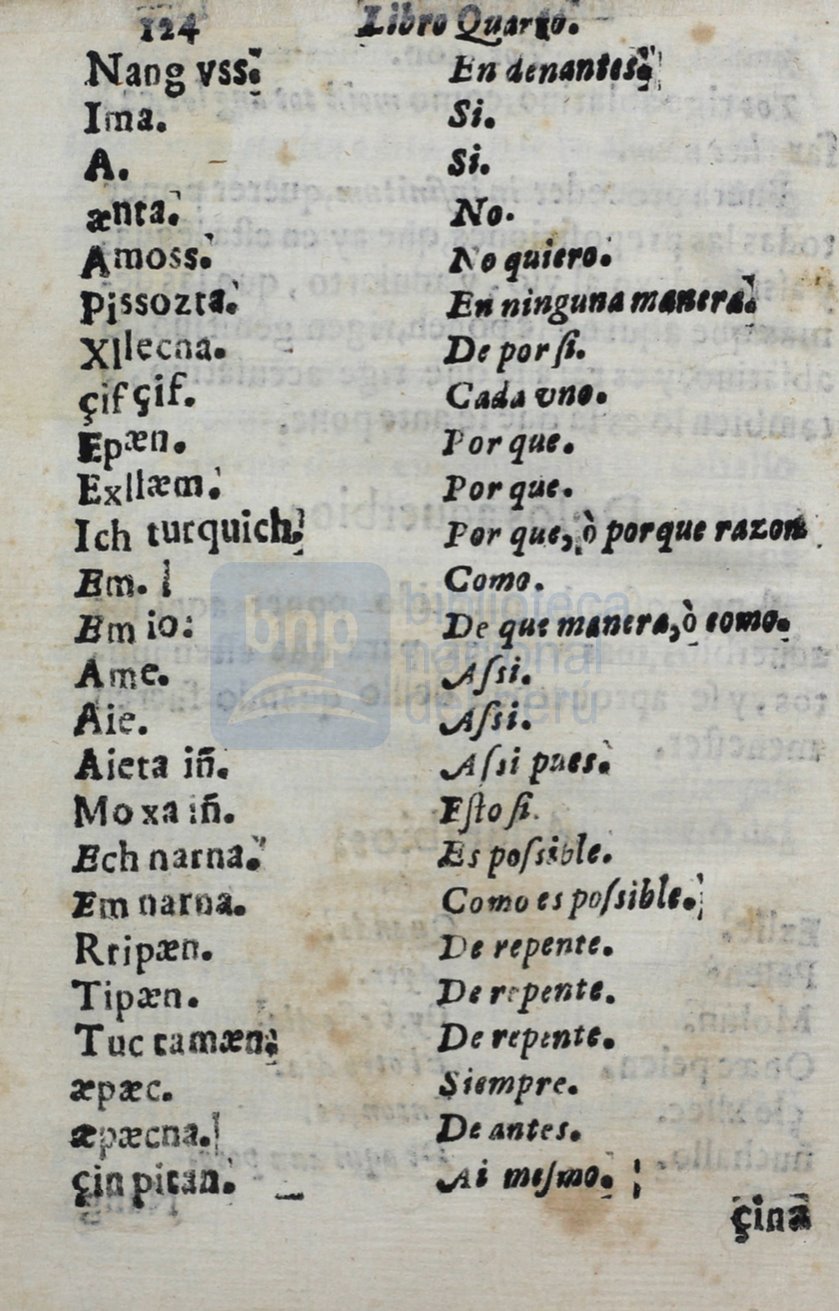 124 Libro Quarto.
Nang vss. En denantes.
Ima. Si.
A. Si.
ænta. No.
Amoss. No quiero.
Pissozta. En ninguna manera.
Xllecna. De por ſi.
çif çif. Cada vno.
Epæn. Por que.
Exllæm. Por que.
Ich turquich. Por que, ò porque razon
Em. Como.
Em io: De que manera, ò como.
Ame. Aſsi.
Aie. Aſsi.
Aieta iñ. Aſsi pues.
Mo xa iñ. Eſto ſi.
Ech narna. Es poſsible.
Em narna. Como es poſsible.
Rripæn. De repente.
Tipæn. De repente.
Tuc tamæn. De repente.
æpæc. Siempre.
æpæcna. De antes.
çin pitan. Ai meſmo.
çina
bnp biblioteca
nacional
del perú